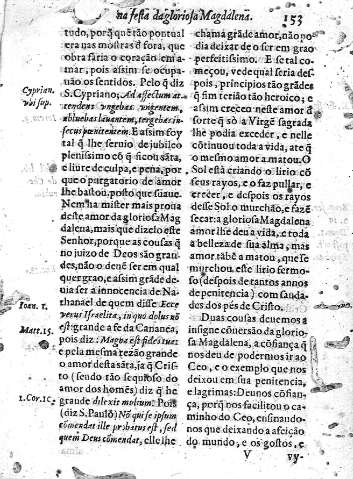 na festa da gloriosa Magdalena.
153
tudo, porq̃ que tão pontual
era nas mostras d'fora, que
obra faria o coração em a-
mar, pois assim se ocupa-
uão os sentidos. Pelo q̃ diz
S. Cypriano, Ad affectum at-
tendens ungebas ungentem,
abluebas lauantem, tergebas in-
secus pœnitentem. E assim foy
tal q̃ lhe seruio de jubileo
plenissimo cõ q̃ ficou sãta,
e liure de culpa, e pena, por
que o purgatorio de amor
lhe bastou, posto que suaue.
Nem ha mister mais prona
deste amor da gloriosa Mag
dalena, mais que dizelo este
Senhor, porque as cousas q̃
no juizo de Deos são gran-
des, não o dene ser em qual
quer grao, e assim grãde de-
uia ser a innocencia de Na-
thanael de quem disse. Ecce
verus Israelita, in quo dolus nõ
est: grande a fe da Cananea,
pois diz: Magna est fides tua:
e pela mesma rezão grande
o amor desta sãta, ja q̃ Cris-
to (sendo tão sequioso do
amor dos homẽs) diz q̃ he
grande dilexit multum: Pois
(diz S. Paulo) Nõ qui se ipsum
cõmendat ille probatus est, sed
quem Deus cõmendat, elle lhe
Cyprian.
vbi sup.
Ioan. 1.
Matt. 15.
2. Cor. 1c.
chama grãde amor, não po-
dia deixar de o ser em grao
perfeitissimo. E se tal co-
meçou, vede qual seria des-
pois, principios tão grãdes
q̃ fim terião tão heroico; e
assim creceo neste amor d'
sorte q̃ só a Virgẽ sagrada
lhe podia exceder, e nelle
cõtinuou toda a vida, ate q̃
o mesmo amor a matou. O
Sol está criando o lirio cõ
seus rayos, e o faz pullar, e
crecer, e despois os rayos
desse Sol o murchão, e fazẽ
secar: a gloriosa Magdalena
amor lhe deu a vida, e toda
a belleza de sua alma, mas
amor tãbẽ a matou, que se
murchou este lirio fermo-
so (despois de tantos annos
de penitencia) com sauda-
des dos pés de Cristo.
Duas cousas deuemos a
insigne cõuersão da glorio-
sa Magdalena, a cõfiança q̃
nos deu de podermos ir ao
Ceo, e o exemplo que nos
deixou em sua penitencia,
e lagrimas: Deu nos cõfian-
ça, porq̃ nos facilitou o ca-
minho do Ceo, ensinando-
nos que deixando a afeição
do mundo, e os gostos, e
V
vy-